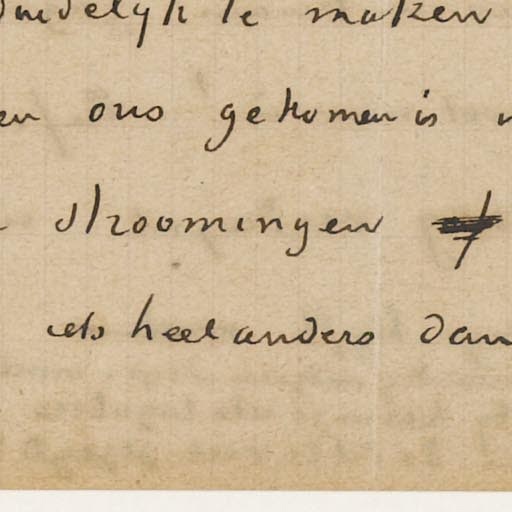 duidelyk te maken
en ons gekomen is
stroomingen
iets heel anders dan